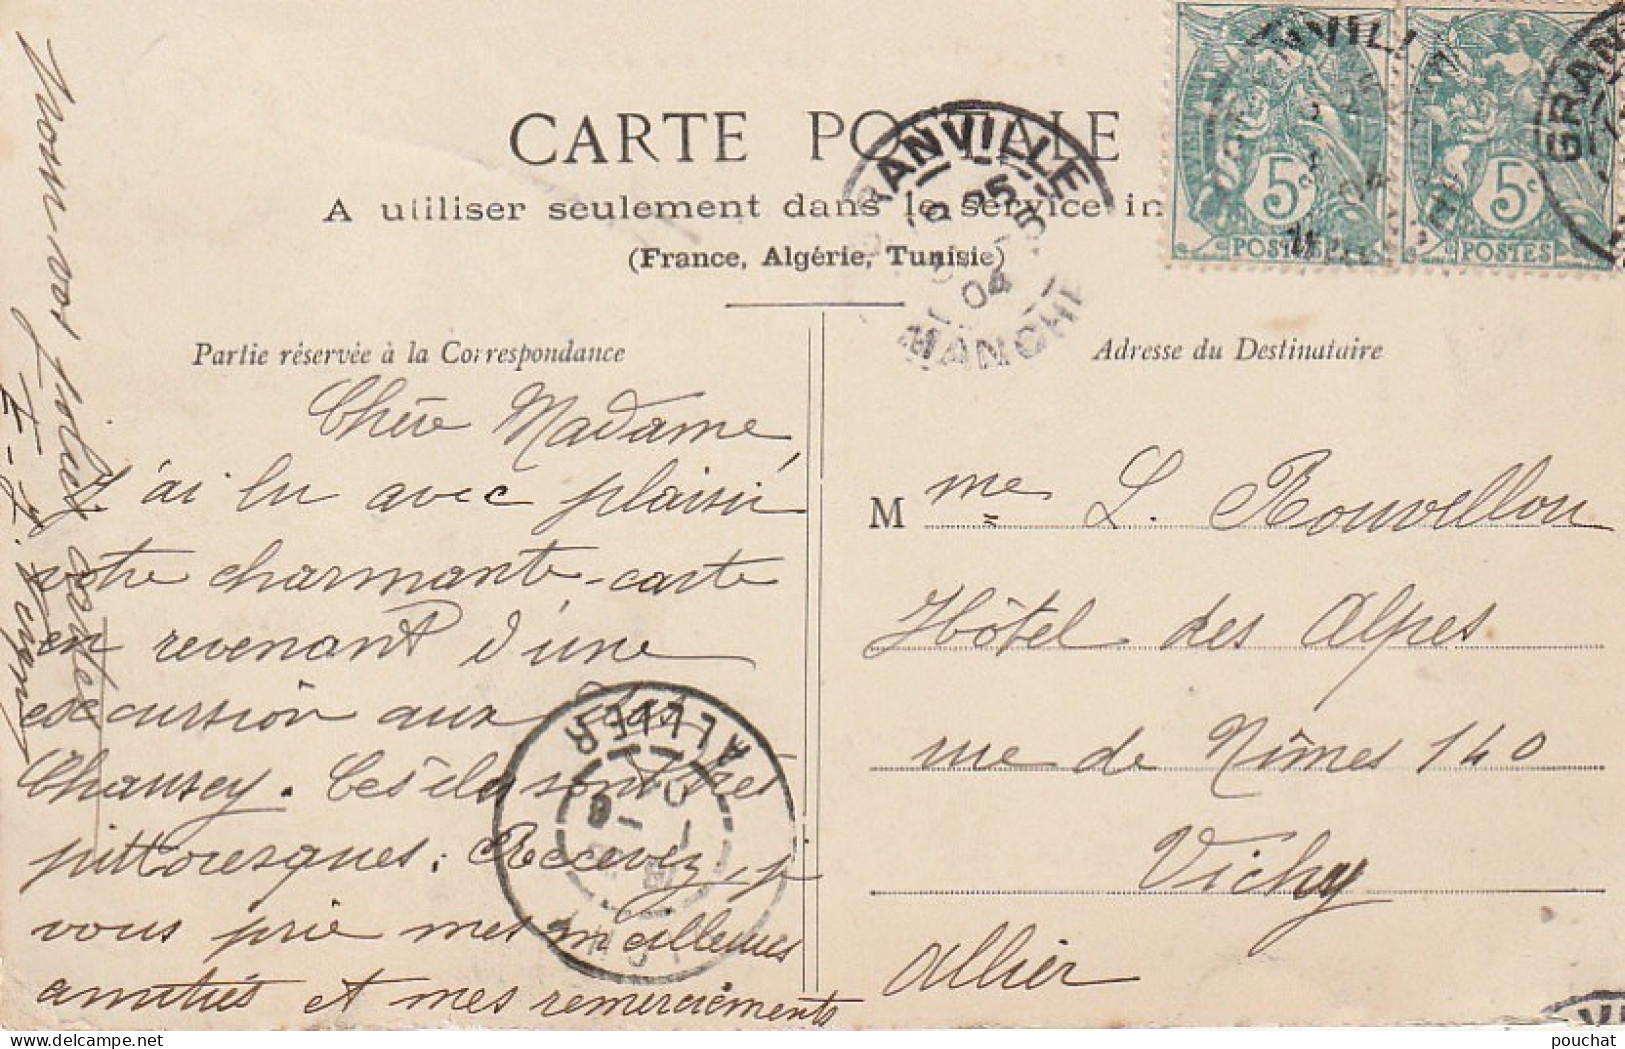 CARTE POSTALE
A utiliser seulement dans le service in
(France, Algérie, Tunisie)
GRANVILLE
25
5
04
MANCHE
5c
POSTES
5c
POSTES
GRAN
Partie réservée à la Correspondance
Adresse du Destinataire
Chère Madame,
J'ai lu avec plaisir
votre charmante carte
en revenant d'une
excursion aux îles
Chausey. Ces îles sont très
pittoresques. Recevez, je
vous prie mes meilleures
amitiés et mes remerciements
pour vos jolies cartes
ALLIER
M me L. Rouvellou
Hôtel des Alpes
rue de Nîmes 140
Vichy
Allier
pouchat